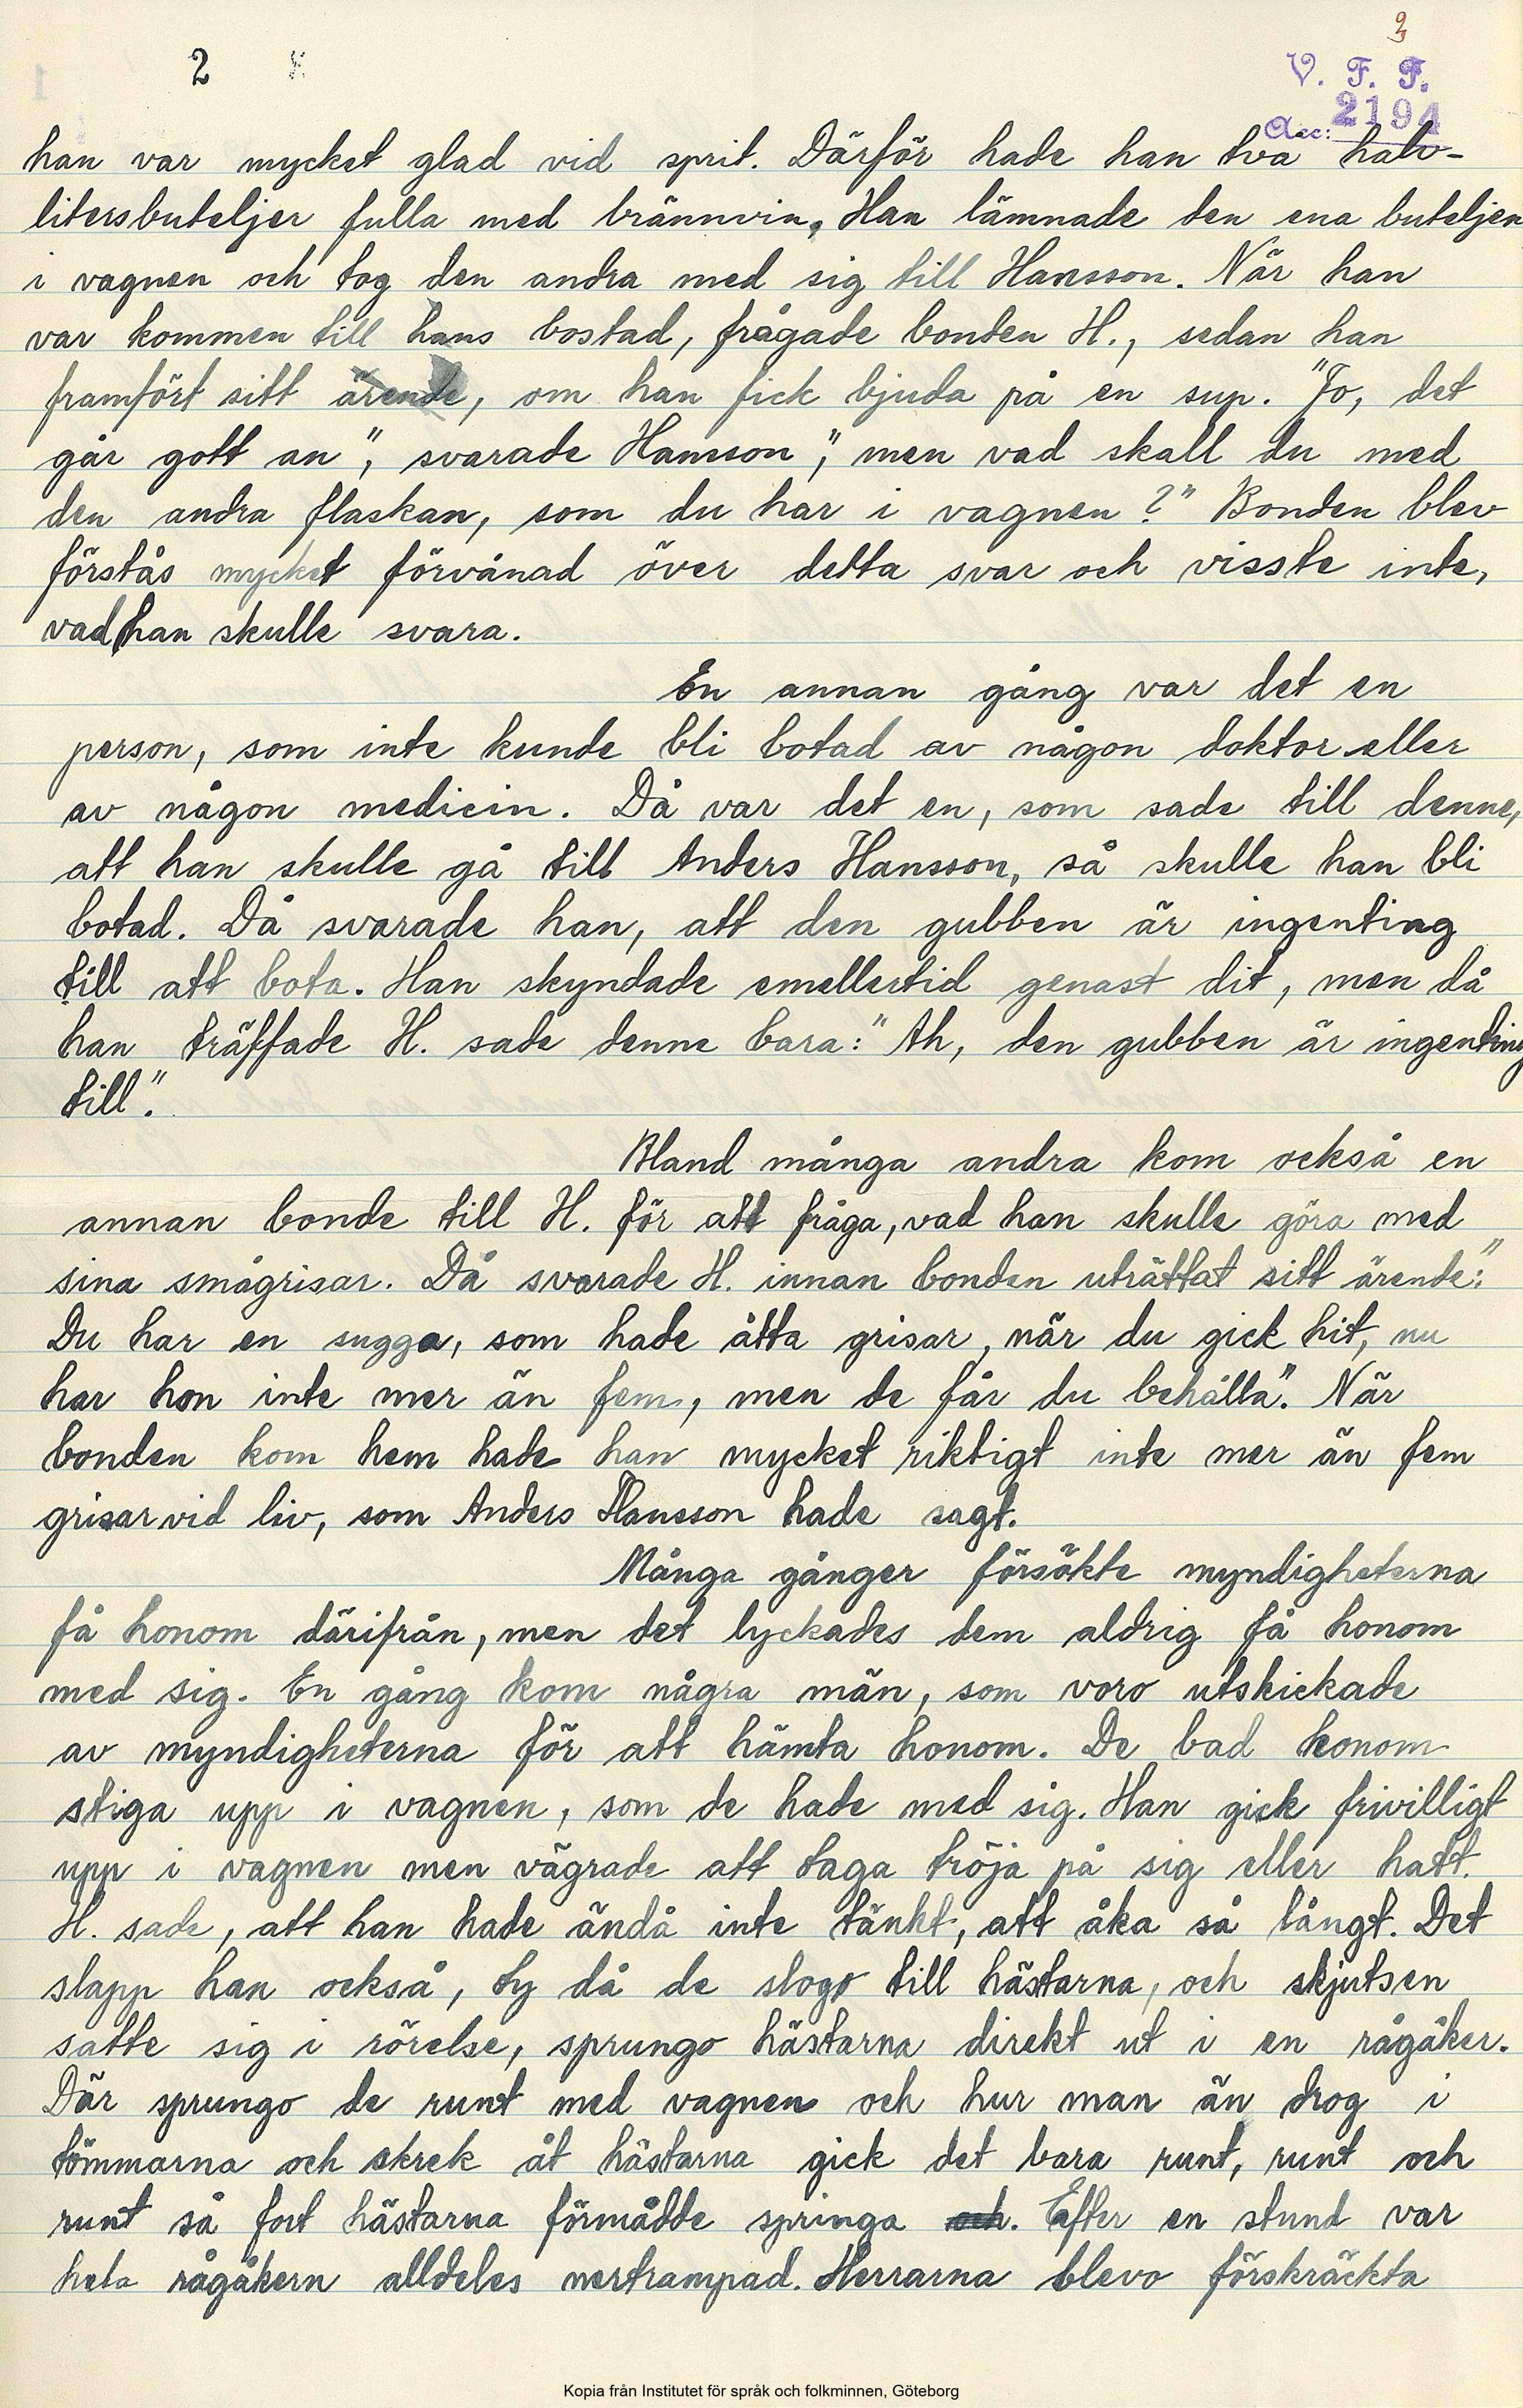 2
2
V. F. F.
Acc: 2194
han var mycket glad vid sprit. Därför hade han två halv-
litersbuteljer fulla med brännvin. Han lämnade den ena buteljen
i vagnen och tog den andra med sig till Hansson. När han
var kommen till hans bostad, frågade bonden H., sedan han
framfört sitt ärende, om han fick bjuda på en sup. "Jo, det
går gott an", svarade Hansson", men vad skall du med
den andra flaskan, som du har i vagnen?" Bonden blev
förstås mycket förvånad över detta svar och visste inte,
vad han skulle svara.
En annan gång var det en
person, som inte kunde bli botad av någon doktor eller
av någon medicin. Då var det en, som sade till denne,
att han skulle gå till Anders Hansson, så skulle han bli
botad. Då svarade han, att den gubben är ingenting
till att bota. Han skyndade emellertid genast dit, men då
han träffade H. sade denne bara: "Ah, den gubben är ingenting
till".
Bland många andra kom också en
annan bonde till H. för att fråga, vad han skulle göra med
sina smågrisar. Då svarade H. innan bonden uträttat sitt ärende: "
Du har en sugga, som hade åtta grisar, när du gick hit, nu
har hon inte mer än fem, men de får du behålla". När
bonden kom hem hade han mycket riktigt inte mer än fem
grisar vid liv, som Anders Hansson hade sagt.
Många gånger försökte myndigheterna
få honom därifrån, men det lyckades dem aldrig få honom
med sig. En gång kom några män, som voro utskickade
av myndigheterna för att hämta honom. De bad honom
stiga upp i vagnen, som de hade med sig. Han gick frivilligt
upp i vagnen men vägrade att taga tröja på sig eller hatt.
H. sade, att han hade ändå inte tänkt, att åka så långt. Det
slapp han också, ty då de slogo till hästarna, och skjutsen
satte sig i rörelse, sprungo hästarna direkt ut i en rågåker.
Där sprungo de runt med vagnen och hur man än drog i
tömmarna och skrek åt hästarna gick det bara runt, runt och
runt så fort hästarna förmådde springa och. Efter en stund var
hela rågåkern alldeles nertrampad. Herrarna blevo förskräckta
Kopia från Institutet för språk och folkminnen, Göteborg